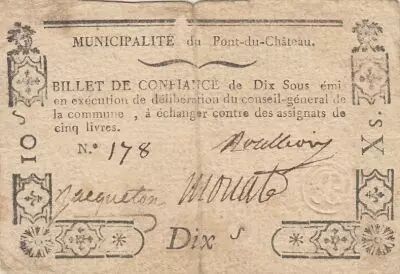 MUNICIPALITÉ du Pont-du-Château.
BILLET DE CONFIANCE de Dix Sous émi
en exécution de déliberation du conseil-général de
la commune , à échanger contre des assignats de
cinq livres.
N.º 178
10 s
X s.
Jacqueton
Dix s